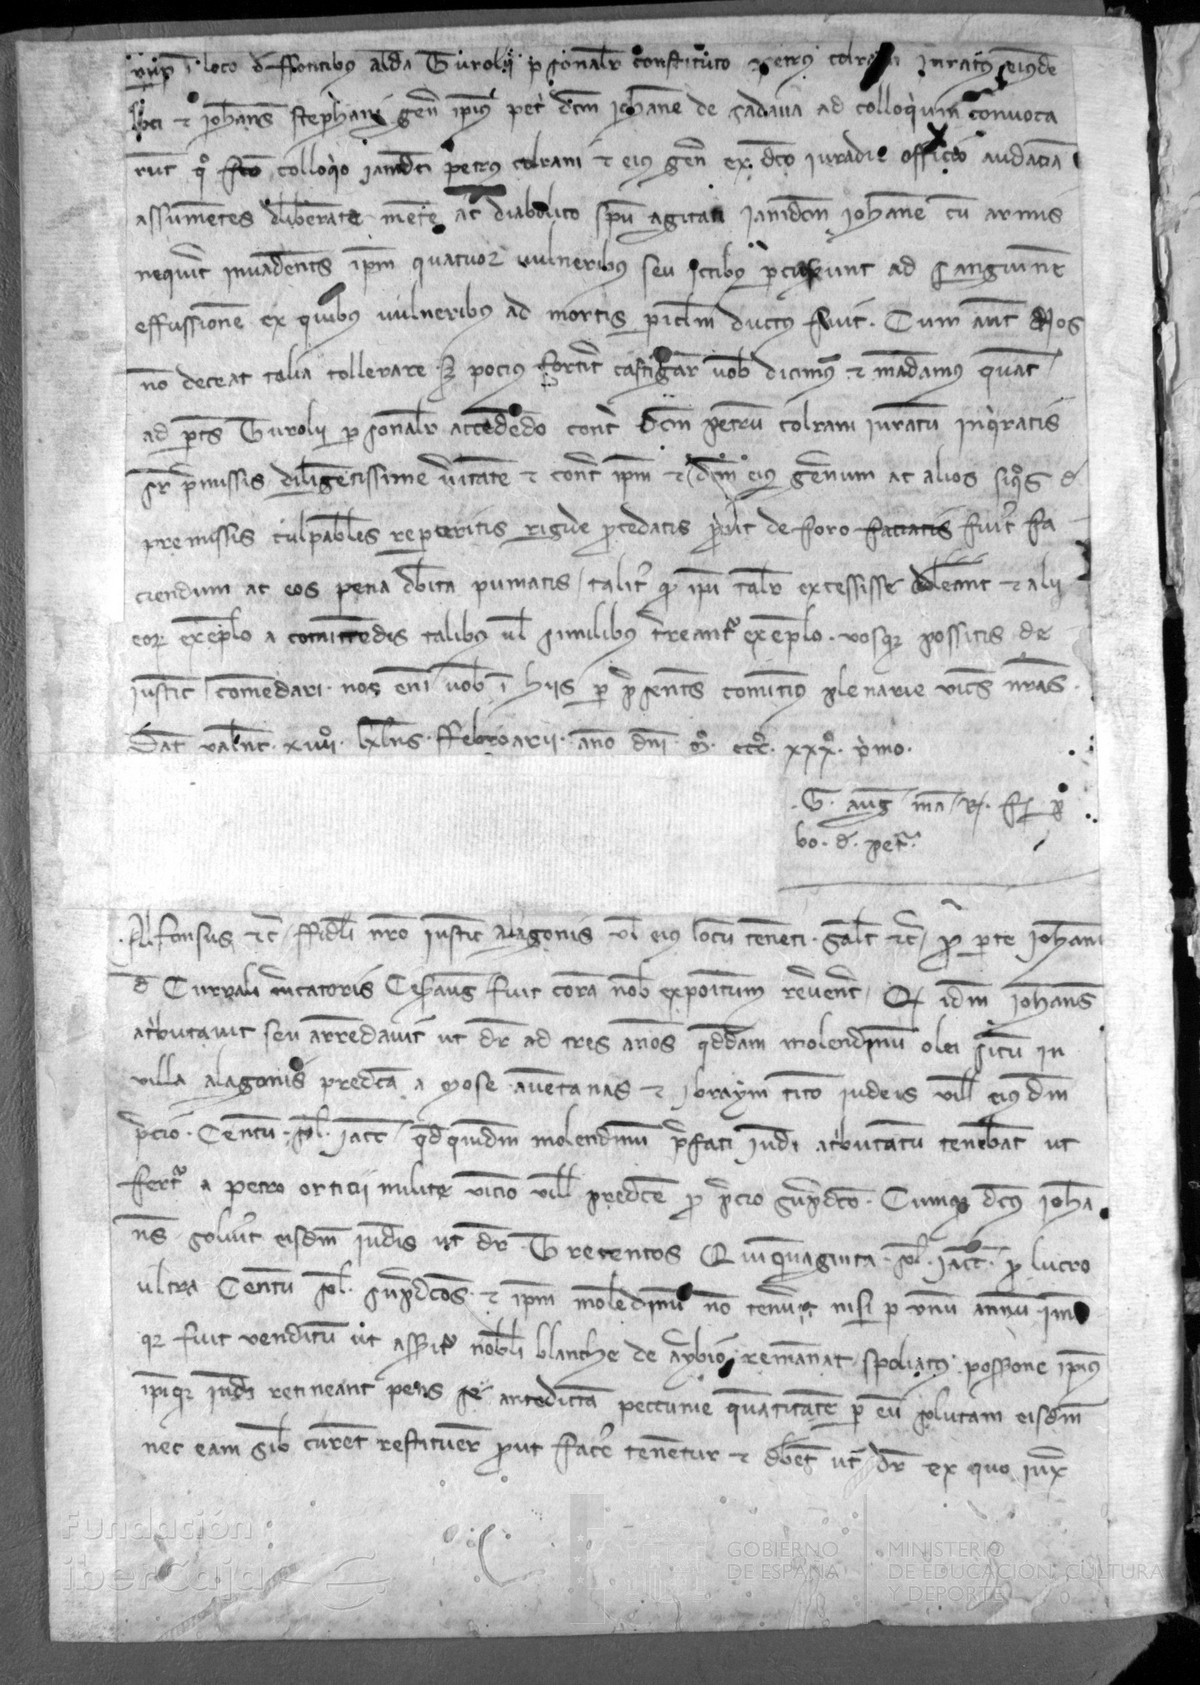 loco d Fontibus alda Turolii psonalr constituto petrus colrani iuratus eiusde
loci ⁊ Johans stephani gen ipius petri dcm Johane de cadaua ad colloquium convoca
runt q fco colloquo iamdci petrus colrani ⁊ eius gen ex dco iuradie officio audacia
assumetes deliberate mete ac diabolico spu agitati iamdcm Johane cu armis
nequit invadents ipm quatuor vulneribus seu ictibus pcusserunt ad sanguine
effussione ex quibus vulneribus ad mortis piclm ductus fuit. Cum aut Nos
no deceat talia tollerare pocius fortit castigar vob dicimus ⁊ madamus quat
ad ptes Turolii psonalr accededo cont dcm petru colrani iuratu inqratis
sr pmissis diligetissime vitate ⁊ cont ipm ⁊ dcm eius generum ac alios siqos d
premissis culpabiles repperitis rigide pcedatis put de foro faciatis fuit fa
ciendum ac eos pena dbita puniatis talit q ipi talr excessisse doleant ⁊ alii
eor exeplo a comittedis talibus vl similibus treant exeplo. vosque possitis de
iustic comedari. nos eni vob i hiis p psents comitimus plenarie vices nras.
Dat valenc. xviii. klns. ffebroarii. ano dni. m. ccc. xxx. pmo.
G. aug ma R. f
bo. d. pet.
Alfonsus etc ffideli nro iustic alagonis vl eius locu teneti. salt etc p parte Johanis
d Curvali mcatoris Cesaraug fuit cora nob expoitum revent Q idm Johans
atbutavit seu arredavit ut dr ad tres anos qddam molendinu olei situ in
villa alagonis predca a mose aventanas ⁊ Ibraym tito iudeis ville eiusdm
pcio. Centu. sol. iacc qd quidm molendinu pfati iudi atbutatu tenebat ut
fert a petro orticii milite vicino ville predce p pcio supdco. Cumque dcus Joha
ns solvit eisdm iudis ut dr Trecentos Quinquaginta. sol. iacc. p lucro
ultra Centu sol. supdcos ⁊ ipm moledinu no tenuit nisi p unu annu imo
qr fuit venditu ut assit nobili blanche de aybio remanat spoliatus possone ipius
ipique iudi retineant penes se antedicta peccunie quatitate p eu solutam eisdm
nec eam sib curet restituer put facer tenetur ⁊ dbet ut dr ex quo iux
Fundación
iberCaja
GOBIERNO
DE ESPAÑA
MINISTERIO
DE EDUCACIÓN, CULTURA
Y DEPORTE